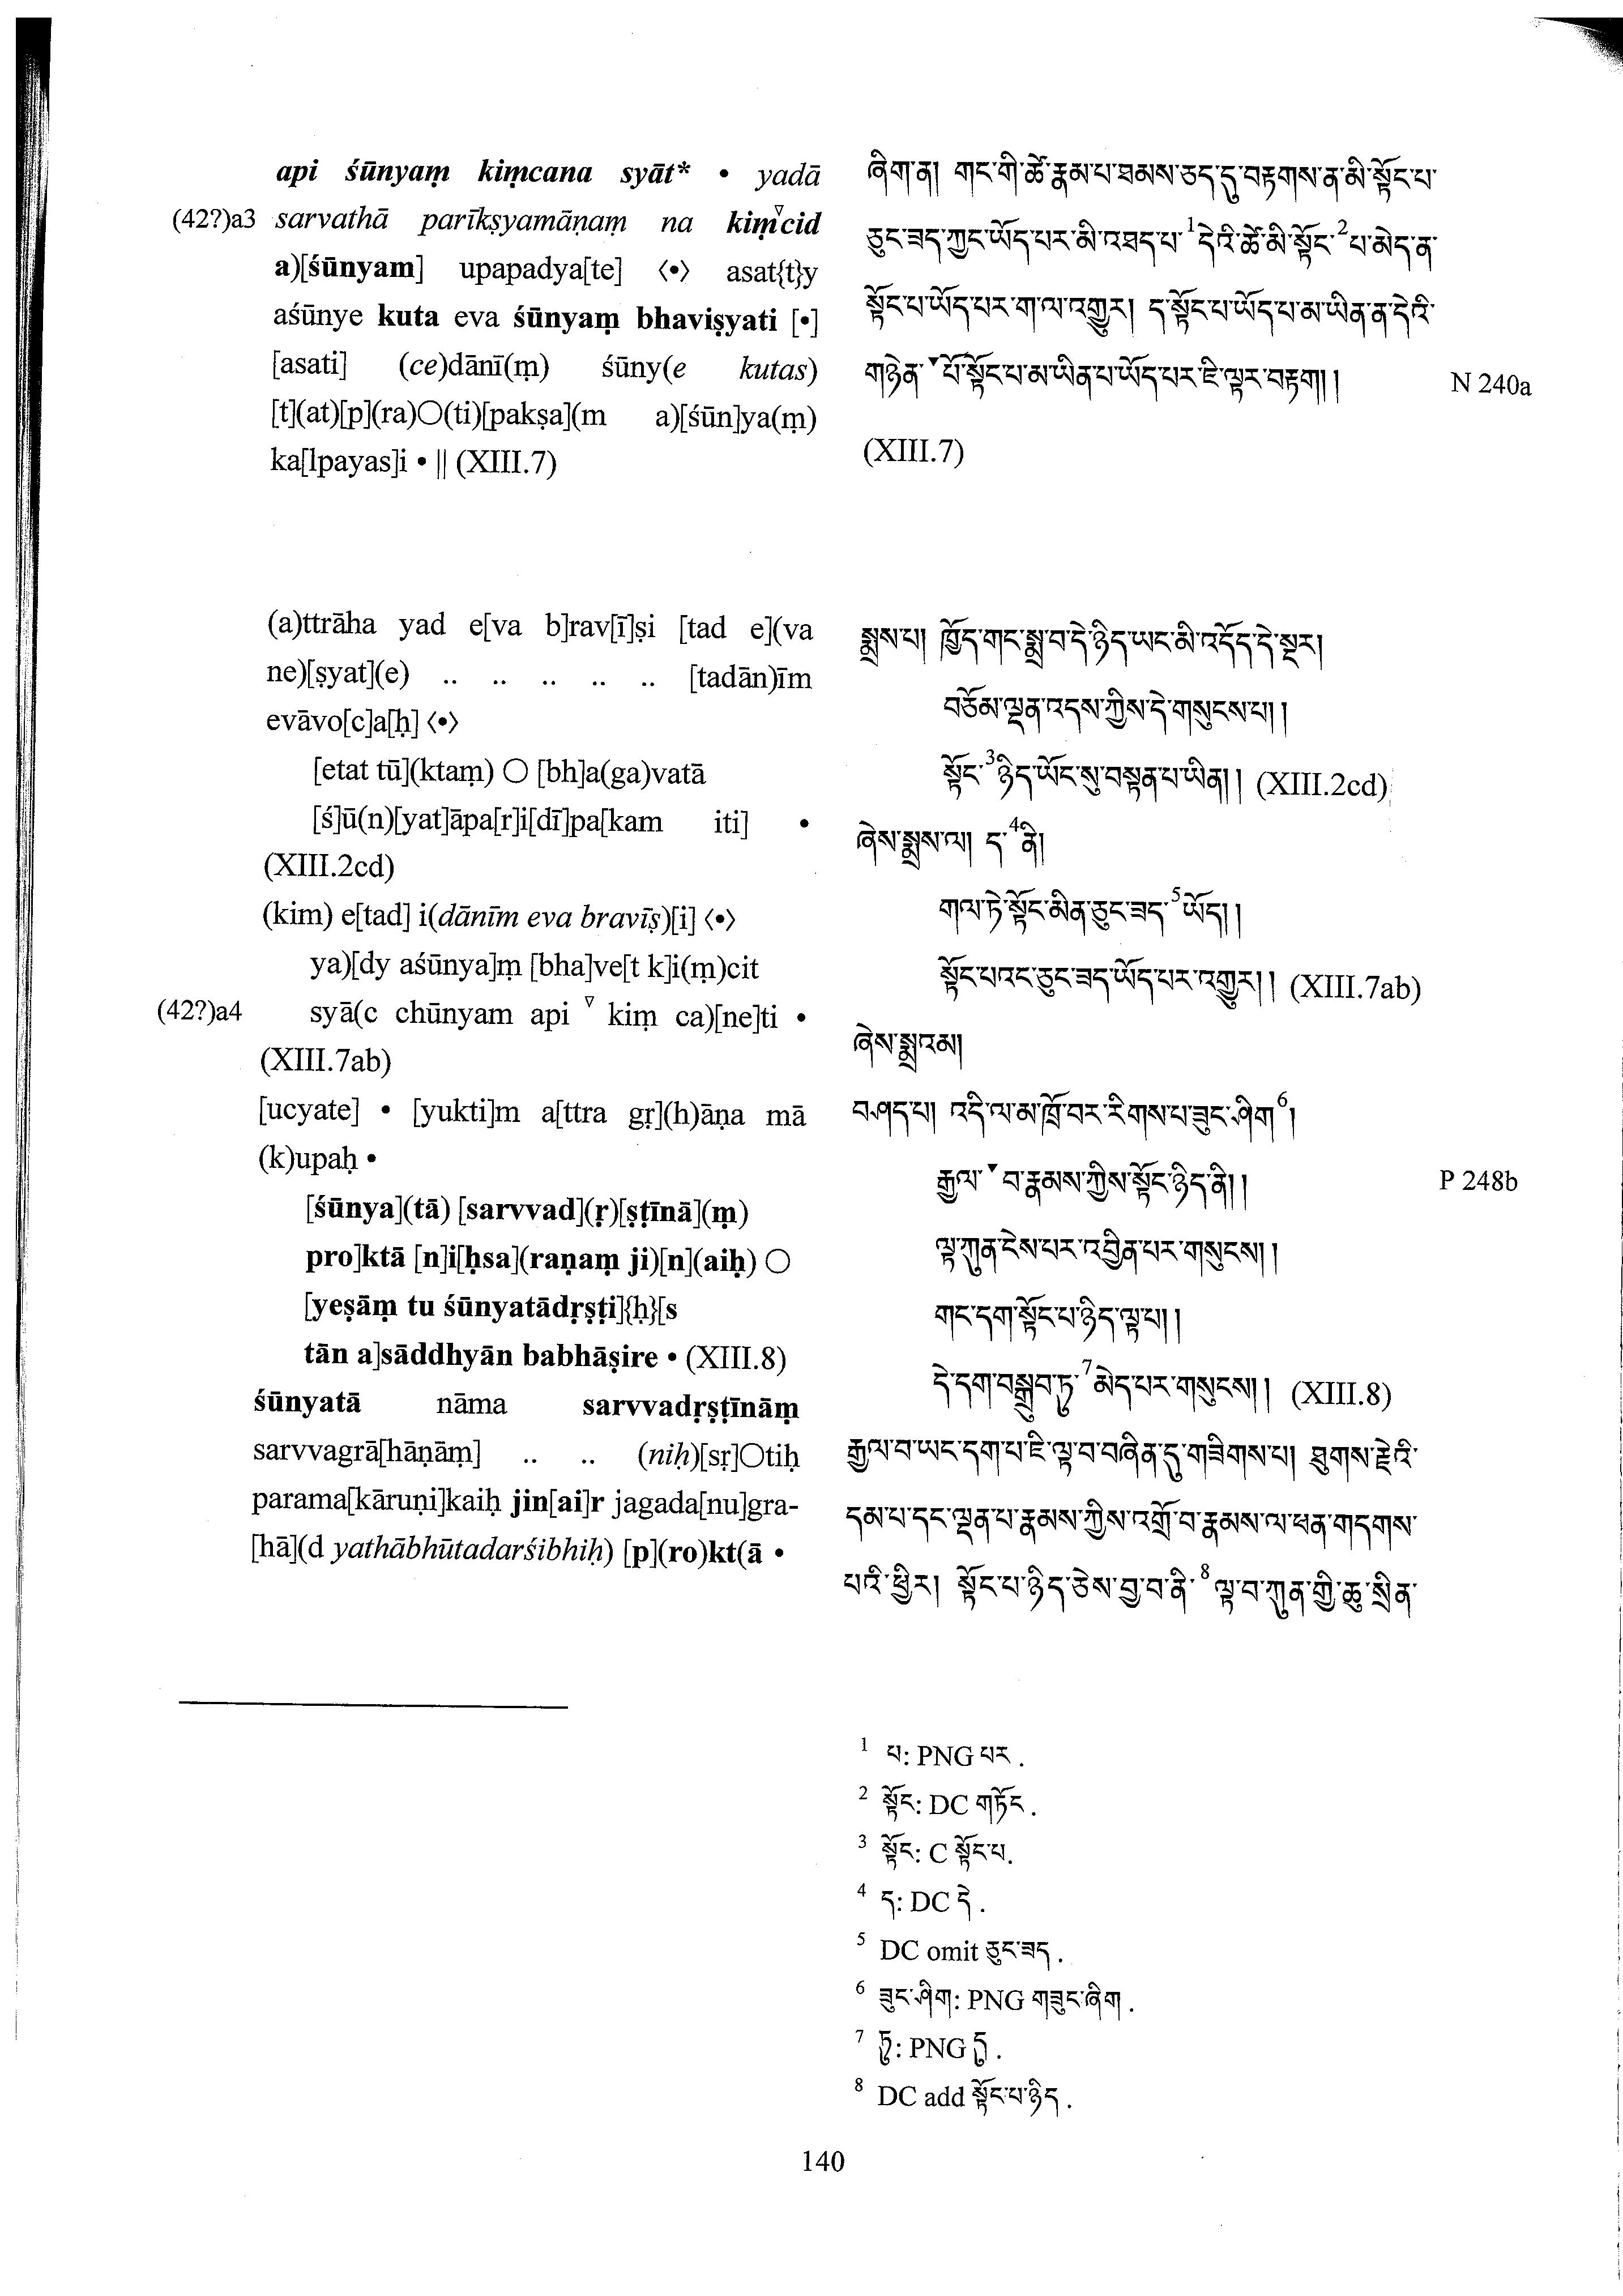 api śūnyaṃ kiṃcana syāt* • yadā
(42?)a3 sarvathā parīkṣyamāṇaṃ na kiṃ▿cid
a)[śūnyam] upapadya[te] ⟨•⟩ asat{t}y
aśūnye kuta eva śūnyaṃ bhaviṣyati [•]
[asati] (ce)dānī(ṃ) śūny(e kutas)
[t](at)[p](ra)○(ti)[pakṣa](m a)[śūn]ya(ṃ)
ka[lpayas]i • || (XIII.7)
(a)ttrāha yad e[va b]rav[ī]ṣi [tad e](va
ne)[ṣyat](e) .. .. .. .. .. [tadān)īm
evāvo[c]a[ḥ] ⟨•⟩
[etat tū](ktaṃ) ○ [bh]a(ga)vatā
[ś]ū(n)[yat]āpa[r]i[dī]pa[kam iti] •
(XIII.2cd)
(kim) e[tad] i(dānīm eva bravīṣ)[i] ⟨•⟩
ya)[dy aśūnya]ṃ [bha]ve[t k]i(ṃ)cit
(42?)a4 syā(c chūnyam api ▿ kiṃ ca)[ne]ti •
(XIII.7ab)
[ucyate] • [yukti]m a[ttra gṛ](h)āṇa mā
(k)upaḥ •
[śūnya](tā) [sarvvad](ṛ)[ṣṭīnā](ṃ)
pro]ktā [n]i[ḥsa](raṇaṃ ji)[n](aiḥ) ○
[yeṣāṃ tu śūnyatādṛṣṭi]{ḥ}[s
tān a]sāddhyān babhāṣire • (XIII.8)
śūnyatā nāma sarvvadṛṣṭīnāṃ
sarvvagrā[hāṇāṃ] .. .. (niḥ)[sṛ]○tiḥ
parama[kāruṇi]kaiḥ jin[ai]r jagada[nu]gra-
[hā](d yathābhūtadarśibhiḥ) [p](ro)kt(ā •
ཞིག་ན། གང་གི་ཚེ་རྣམ་པ་ཐམས་ཅད་དུ་བརྟགས་ན་མི་སྟོང་པ་
ཅུང་ཟད་ཀྱང་ཡོད་པར་མི་འཐད་པ་1དེའི་ཚེ་མི་སྟོང་2པ་མེད་ན་
སྟོང་པ་ཡོད་པར་ག་ལ་འགྱུར། ད་སྟོང་པ་ཡོད་པ་མ་ཡིན་ན་དེའི་
གཉེན་▾པོ་སྟོང་པ་མ་ཡིན་པ་ཡོད་པར་ཇི་ལྟར་བརྟག། ། N 240a
(XIII.7)
སྨྲས་པ། ཁྱོད་གང་སྨྲ་བ་དེ་ཉིད་ཡང་མི་འདོད་དེ་སྔར།
བཅོམ་ལྡན་འདས་ཀྱིས་དེ་གསུངས་པ། །
སྟོང་3ཉིད་ཡོངས་སུ་བསྟན་པ་ཡིན། ། (XIII.2cd)
ཞེས་སྨྲས་ལ། ད་4ནི།
གལ་ཏེ་སྟོང་མིན་ཅུང་ཟད་5ཡོད། །
སྟོང་པའང་ཅུང་ཟད་ཡོད་པར་འགྱུར། ། (XIII.7ab)
ཞེས་སྨྲའམ།
བཤད་པ། འདི་ལ་མ་ཁྲོ་བར་རིགས་པ་ཟུང་ཤིག6།
རྒྱལ་▾བ་རྣམས་ཀྱིས་སྟོང་ཉིད་ནི། ། P 248b
ལྟ་ཀུན་ངེས་པར་འབྱིན་པར་གསུངས། །
གང་དག་སྟོང་པ་ཉིད་ལྟ་བ། །
དེ་དག་བསྒྲུབ་ཏུ་7མེད་པར་གསུངས། ། (XIII.8)
རྒྱལ་བ་ཡང་དག་པ་ཇི་ལྟ་བ་བཞིན་དུ་གཟིགས་པ། ཐུགས་རྗེའི་
དམ་པ་དང་ལྡན་པ་རྣམས་ཀྱིས་འགྲོ་བ་རྣམས་ལ་ཕན་གདགས་
པའི་ཕྱིར། སྟོང་པ་ཉིད་ཅེས་བྱ་བ་ནི་8ལྟ་བ་ཀུན་གྱི་ཆུ་སྲིན་
1 པ: PNG པར .
2 སྟོང: DC གཏོང .
3 སྟོང: C སྟོང་པ.
4 ད: DC དེ .
5 DC omit ཅུང་ཟད .
6 ཟུང་ཤིག: PNG གཟུང་ཞིག .
7 ཏུ: PNG དུ .
8 DC add སྟོང་པ་ཉིད .
140